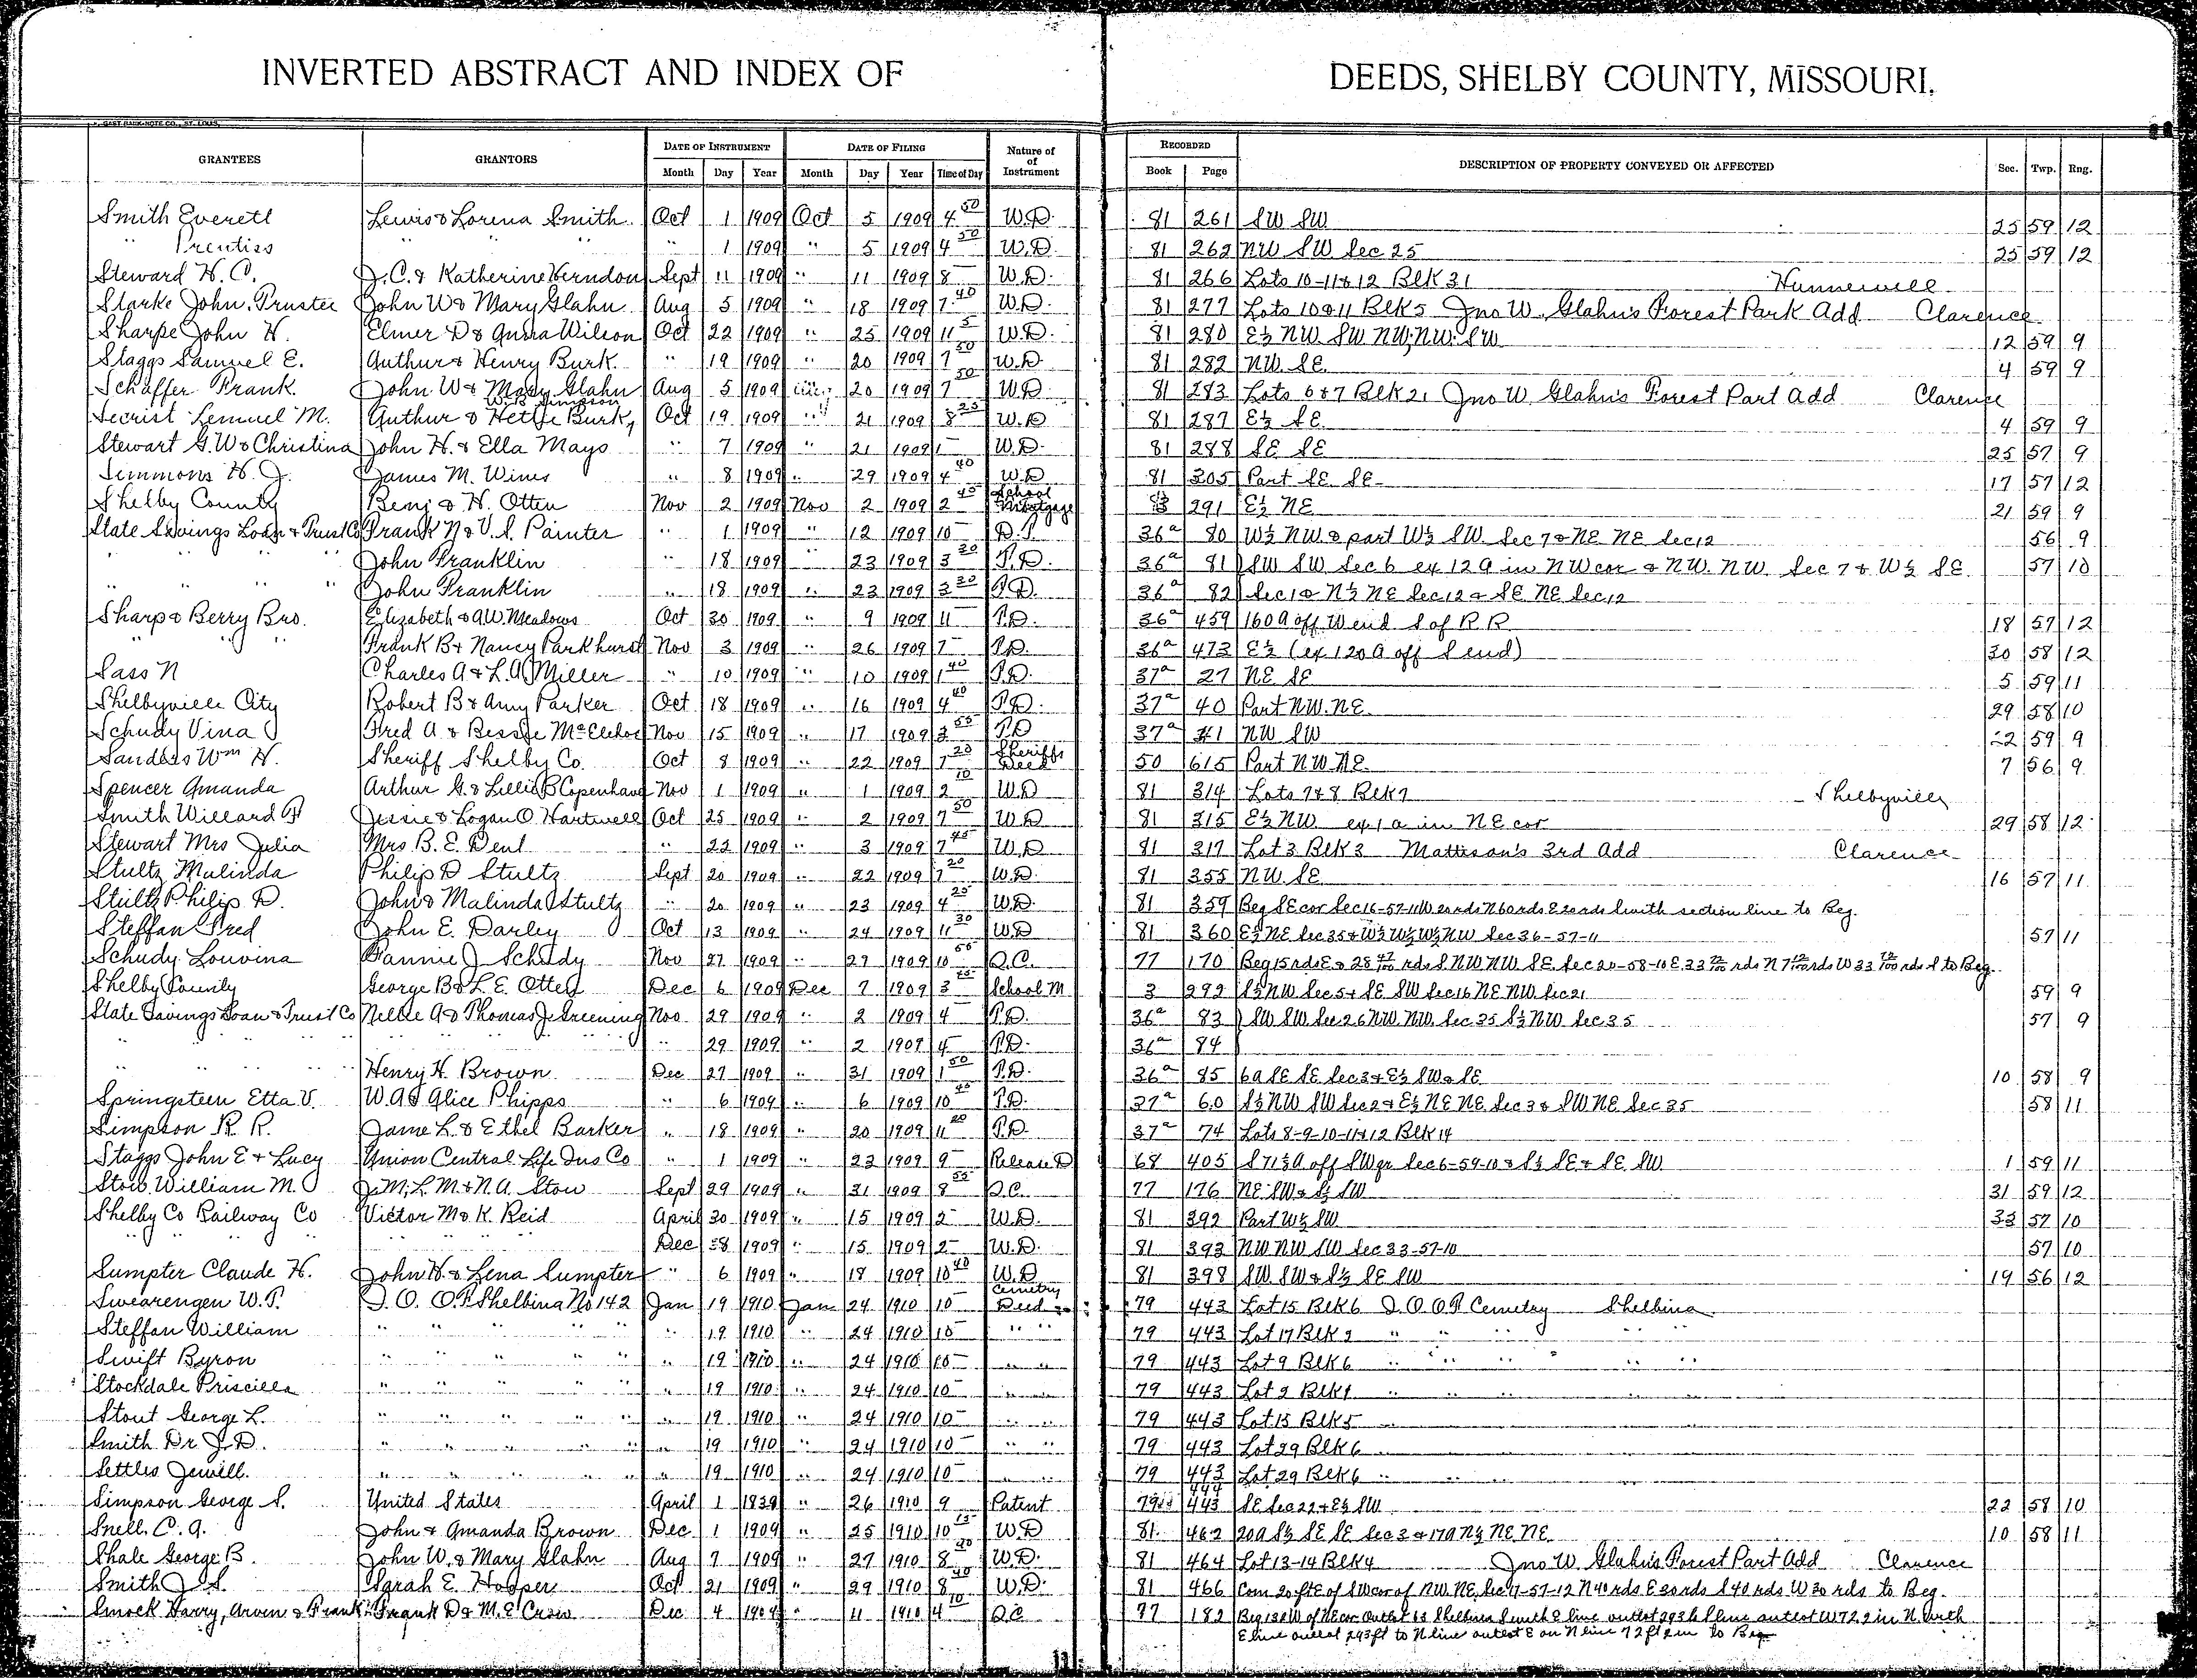 INVERTED ABSTRACT AND INDEX OF DEEDS, SHELBY COUNTY, MISSOURI.
GAST BANK-NOTE CO., ST. LOUIS.
GRANTEES GRANTORS DATE OF INSTRUMENT DATE OF FILING Nature of of Instrument RECORDED DESCRIPTION OF PROPERTY CONVEYED OR AFFECTED Sec. Twp. Rng.
Month Day Year Month Day Year Time of Day Book Page
Smith Everett Lewis & Lorena Smith Oct 1 1909 Oct 5 1909 4 50 W.D. 81 261 SW SW 25 59 12
" Prentiss " " " " 1 1909 " 5 1909 4 50 W.D. 81 262 NW SW Sec 25 25 59 12
Steward H. C. J.C. & Katherine Herndon Sept 11 1909 " 11 1909 8 W.D. 81 266 Lots 10-11 & 12 Blk 31 Hunnewell
Starke John. Trustee John W & Mary Glahn Aug 5 1909 " 18 1909 7 40 W.D. 81 277 Lots 10 & 11 Blk 5 Jno W. Glahn's Forest Park Add Clarence
Sharpe John H. Elmer D & Wilson Oct 22 1909 " 25 1909 11 5 W.D. 81 280 E½ NW SW NW; NW SW 12 59 9
Staggs Samuel E. Authur & Henry Burk " 19 1909 20 1909 7 50 W.D. 81 282 NW SE 4 59 9
Schaffer Frank. John W & Mary Glahn Aug 5 1909 20 1909 7 50 W.D. 81 283 Lots 6 & 7 Blk 2, Jno W. Glahn's Forest Part Add Clarence
Secrist Lemuel M. Authur & Hettie Burk, Oct 19 1909 " 21 1909 8 25 W.D. 81 287 E½ SE 4 59 9
Stewart G.W & Christina John H. & Ella Mays " 7 1909 " 21 1909 1 W.D. 81 288 SE SE 25 57 9
Simmons H. J. James M. Wines " 8 1909 " 29 1909 4 40 W.D 81 305 Part SE SE 17 57 12
Shelby County Benj & H. Otten Nov 2 1909 Nov 2 1909 2 45 School Mortgage 291 E½ NE 21 59 9
State Savings Loan & Trust Co Frank N & V. S. Painter " 1 1909 " 12 1909 10 D.T. 36a 80 W½ NW & part W½ SW Sec 7 & NE NE Sec 12 56 9
" " " John Franklin " 18 1909 " 23 1909 3 20 T.D. 36a 81 SW SW Sec 6 ex 12 a in NW cor & NW. NW. Sec 7 & W½ SE 57 10
" " " " John Franklin " 18 1909 " 23 1909 3 20 T.D. 36a 82 Sec 1 & N½ NE Sec 12 & SE NE Sec 12
Sharp & Berry Bro. Elizabeth & A.W. Meadows Oct 30 1909 9 1909 11 T.D. 36a 459 160 a off W end S of R R 18 57 12
" " " Frank B & Nancy Parkhurst Nov 3 1909 " 26 1909 7 T.D. 36a 473 E½ (ex 120 a off S end) 30 58 12
Sass N Charles A & L.A. Miller " 10 1909 " 10 1909 1 40 T.D. 37a 27 NE SE 5 59 11
Shelbyville City Robert B & Amy Parker Oct 18 1909 " 16 1909 4 40 T.D. 37a 40 Part NW. NE. 29 58 10
Schudy Vina Fred A & Bessie Nov 15 1909 " 17 1909 3 55 T.D 37a 41 NW SW 22 59 9
Sanders Wm H. Sheriff Shelby Co. Oct 8 1909 " 22 1909 7 20 Sheriffs Deed 50 615 Part NW NE 7 56 9
Spencer Amanda Arthur G. & Lillie B Copenhaver Nov 1 1909 " 1 1909 2 10 W.D 81 314 Lots 7 & 8 Blk 7 Shelbyville
Smith Willard Jessie & Logan O. Hartwell Oct 25 1909 " 2 1909 7 50 W.D 81 315 E½ NW ex 1 a in NE cor 29 58 12
Stewart Mrs Julia Mrs B. E. Dent " 22 1909 " 3 1909 7 45 W.D 81 317 Lot 3 Blk 3 Mattison's 3rd Add Clarence
Stultz Malinda Philip D Stultz Sept 20 1909 " 22 1909 7 20 W.D. 81 355 NW SE 16 57 11
Stultz Philip D. John & Malinda Stultz " 20 1909 " 23 1909 4 25 W.D. 81 359 Beg SE cor Sec 16-57-11 W 20 rds N 60 rds E 20 rds S with section line to Beg.
Steffan Fred John E. Darley Oct 13 1909 " 24 1909 11 30 W.D 81 360 E½ NE Sec 35 & W½ W½ W½ NW Sec 36-57-11 57 11
Schudy Louvina Fannie J Schudy Nov 27 1909 " 27 1909 10 55 Q.C. 77 170 Beg 15 rds E & 28 rds S NW NW SE Sec 20-58-10 E 33 rds N 7 rds W 33 rds S to Beg.
Shelby County George B & L. E. Otten Dec 6 1909 Dec 7 1909 3 25 School M 3 292 S½ NW Sec 5 & SE SW Sec 16 NE NW Sec 21 59 9
State Savings Loan & Trust Co Nellie A & Thomas J. Greening Nov 29 1909 " 2 1909 4 T.D. 36a 83 SW SW Sec 26 NW NW Sec 35 S½ NW Sec 35 57 9
" " " " " " 29 1909 " 2 1909 4 T.D. 36a 84
" " " Henry H. Brown Dec 27 1909 " 31 1909 1 50 T.D. 36a 85 6a SE SE Sec 3 & E½ SW & SE 10 58 9
Springsteen Etta V. W.A & Alice Phipps " 6 1909 " 6 1909 10 45 T.D. 37a 60 S½ NW SW Sec 2 & E½ NE NE Sec 3 & SW NE Sec 35 58 11
Simpson R. R. Jame L. & Ethel Barker " 18 1909 " 20 1909 11 20 T.D. 37a 74 Lots 8-9-10-11 & 12 Blk 14
Staggs John E & Lucy Union Central Life Ins Co " 1 1909 " 23 1909 9 Release D 68 405 S 71½ a off SW qr Sec 6-59-10 & S½ SE & SE SW 1 59 11
Stow William M. J.M, L.M & N.A. Stow Sept 29 1909 " 31 1909 8 55 Q.C. 77 176 NE SW & S½ SW 31 59 12
Shelby Co Railway Co Victor M & K. Reid April 30 1909 " 15 1909 2 W.D. 81 392 Part W½ SW 33 57 10
" " " " Dec 1909 " 15 1909 2 W.D. 81 393 NW NW SW Sec 33-57-10 57 10
Sumpter Claude H. John H. & Lena Sumpter " 6 1909 " 18 1909 10 40 W.D 81 398 SW SW & S½ SE SW 19 56 12
Swearengen W.T. I. O. O.F. Shelbina No 142 Jan 19 1910 Jan 24 1910 10 Cemetry Deed 79 443 Lot 15 Blk 6 I.O.O.F Cemetry Shelbina
Steffan William " " " " " " 19 1910 " 24 1910 10 " " 79 443 Lot 17 Blk 2 " " " " "
Swift Byron " " " " " " 19 1910 " 24 1910 10 " " 79 443 Lot 9 Blk 6 " " " " "
Stockdale Priscilla " " " " " " 19 1910 " 24 1910 10 " " 79 443 Lot 2 Blk 1 " " " " "
Stout George L. " " " " " " 19 1910 " 24 1910 10 " " 79 443 Lot 13 Blk 5
Smith Dr J.D. " " " " " " 19 1910 " 24 1910 10 " " 79 443 Lot 29 Blk 6
Settles Jewell. " " " " " " 19 1910 " 24 1910 10 " " 79 443 Lot 29 Blk 6 "
Simpson George S. United States April 1 1839 " 26 1910 9 Patent 79 444 443 SE Sec 22 & E½ SW 22 58 10
Snell C. A. John & Amanda Brown Dec 1 1909 " 25 1910 10 15 W.D 81 462 20a S½ SE SE Sec 3 & 17a N½ NE NE 10 58 11
Shale George B. John W. & Mary Glahn Aug 7 1909 " 27 1910 8 20 W.D. 81 464 Lot 13-14 Blk 4 Jno W. Glahn's Forest Part Add Clarence
Smith J. S. Sarah E. Hooper Oct 21 1909 " 29 1910 8 40 W.D. 81 466 Com 20 ft E of SW cor of NW NE Sec 17-57-12 N 40 rds E 30 rds S 40 rds W 30 rds to Beg.
Smock Harry, Arven & Frank Frank D & M.E. Crow Dec 4 1909 " 11 1910 4 10 Q.C 77 182 Beg W of NE cor Outlot 63 Shelbina S with E line outlot 293 ft S line outlot W 72.2 in N with
E line outlot 293 ft to N line outlot E on N line 72 ft 2 in to Beg